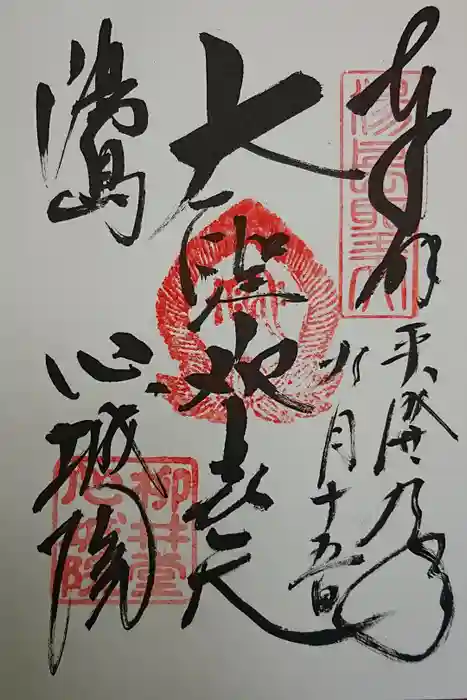 奉拝
平成廿九年
月十五日
大聖歓喜天
湯島
心城院
柳井堂
心城院